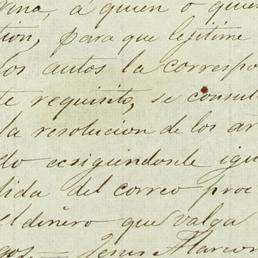 a quien o quien
para que legitime
los autos la correspo
te requisito, se consul
la resolucion de los ar
do ecsigiendosele igu
dida del correo proc
el dinero que valga
gos.